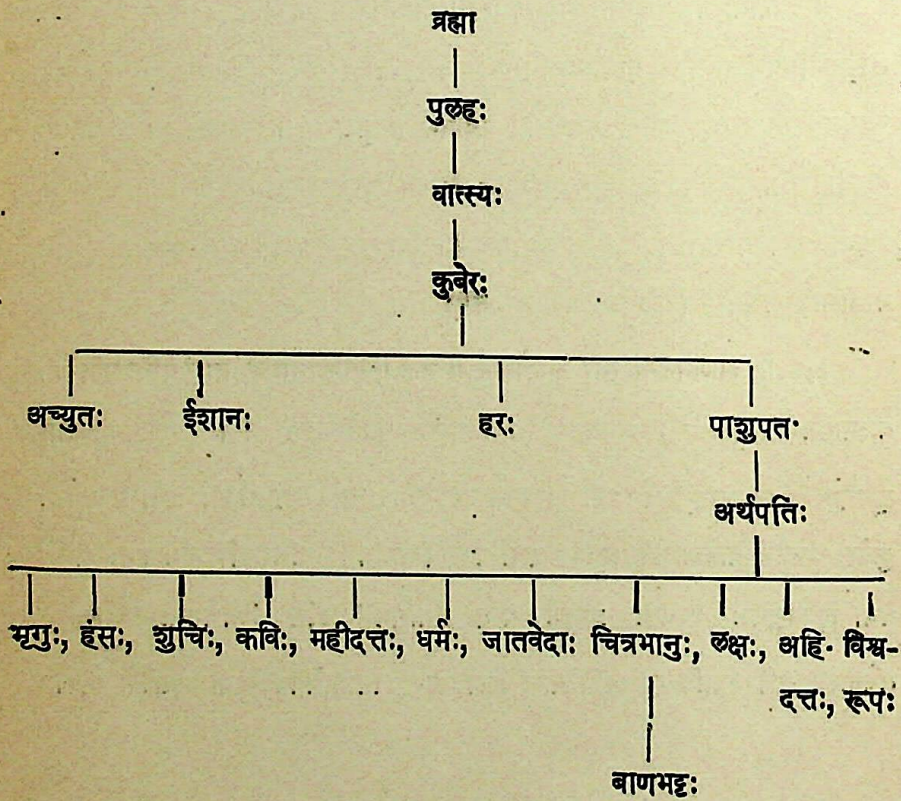 व्रह्मा
पुलहः
वात्स्यः
कुबेरः
अच्युतः ईशानः हरः पाशुपत·
अर्थपतिः
भृगुः, हंसः, शुचिः, कविः, महीदत्तः, धर्मः, जातवेदाः चित्रभानुः, लक्षः, अहि- विश्व-
दत्तः, रूपः
बाणभट्टः